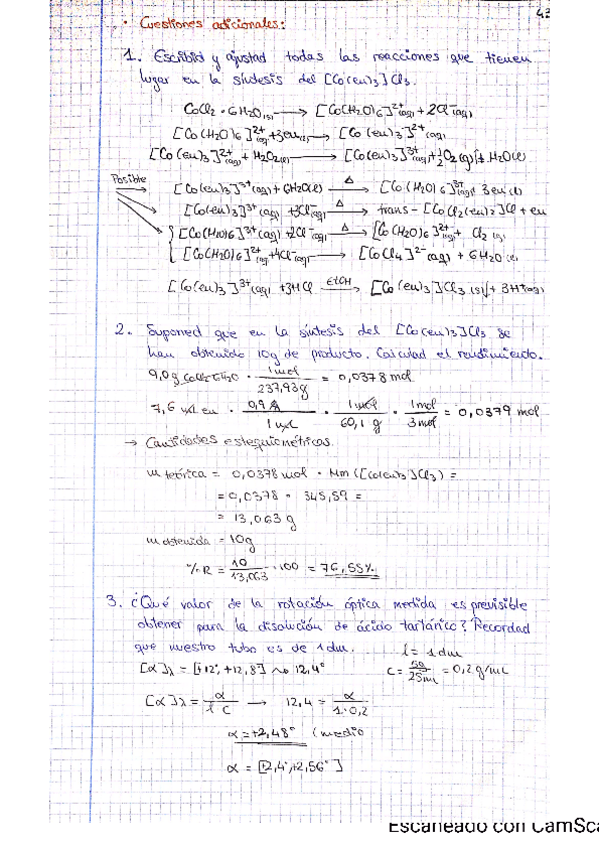 43
• Cuestiones adicionales:
1. Escribid y ajustad todas las reacciones que tienen
lugar en la síntesis del [Co(en)3]Cl3.
CoCl2 · 6H2O(s) → [Co(H2O)6]2+(aq) + 2Cl-(aq)
[Co(H2O)6]2+(aq) + 3en(l) → [Co(en)3]2+(aq)
[Co(en)3]2+(aq) + H2O2(l) → [Co(en)3]3+(aq) + 1/2 O2(g)↑ + H2O(l)
Posible
[Co(en)3]3+(aq) + 6H2O(l) –Δ→ [Co(H2O)6]3+(aq) + 3en(l)
[Co(en)3]3+(aq) + 3Cl-(aq) –Δ→ trans-[CoCl2(en)2]Cl + en
[Co(H2O)6]3+(aq) + 2Cl-(aq) –Δ→ [Co(H2O)6]2+(aq) + Cl2(g)
[Co(H2O)6]2+(aq) + 4Cl-(aq) → [CoCl4]2-(aq) + 6H2O(l)
[Co(en)3]3+(aq) + 3HCl –EtOH→ [Co(en)3]Cl3(s)↓ + 3H+(aq)
2. Suponed que en la síntesis del [Co(en)3]Cl3 se
han obtenido 10g de producto. Calculad el rendimiento.
9,0 g CoCl2·6H2O · 1mol / 237,93g = 0,0378 mol
7,6 mL en · 0,9 g / 1 mL · 1mol / 60,1 g · 1mol / 3mol = 0,0379 mol
→ Cantidades estequiométricas
m teórica = 0,0378 mol · Mm([Co(en)3]Cl3) =
= 0,0378 · 345,59 =
= 13,063 g
m obtenida = 10g
% R = 10 / 13,063 · 100 = 76,55%
3. ¿Qué valor de la rotación óptica medida es previsible
obtener para la disolución de ácido tartárico? Recordad
que nuestro tubo es de 1 dm.
l = 1 dm
[α]λ = [+12°, +12,8°] ~> 12,4°
c = 5g / 25mL = 0,2 g/mL
[α]λ = α / l c → 12,4 = α / 1·0,2
α = +2,48° (medio
α = [+2,4°, +2,56°]
Escaneado con CamSca